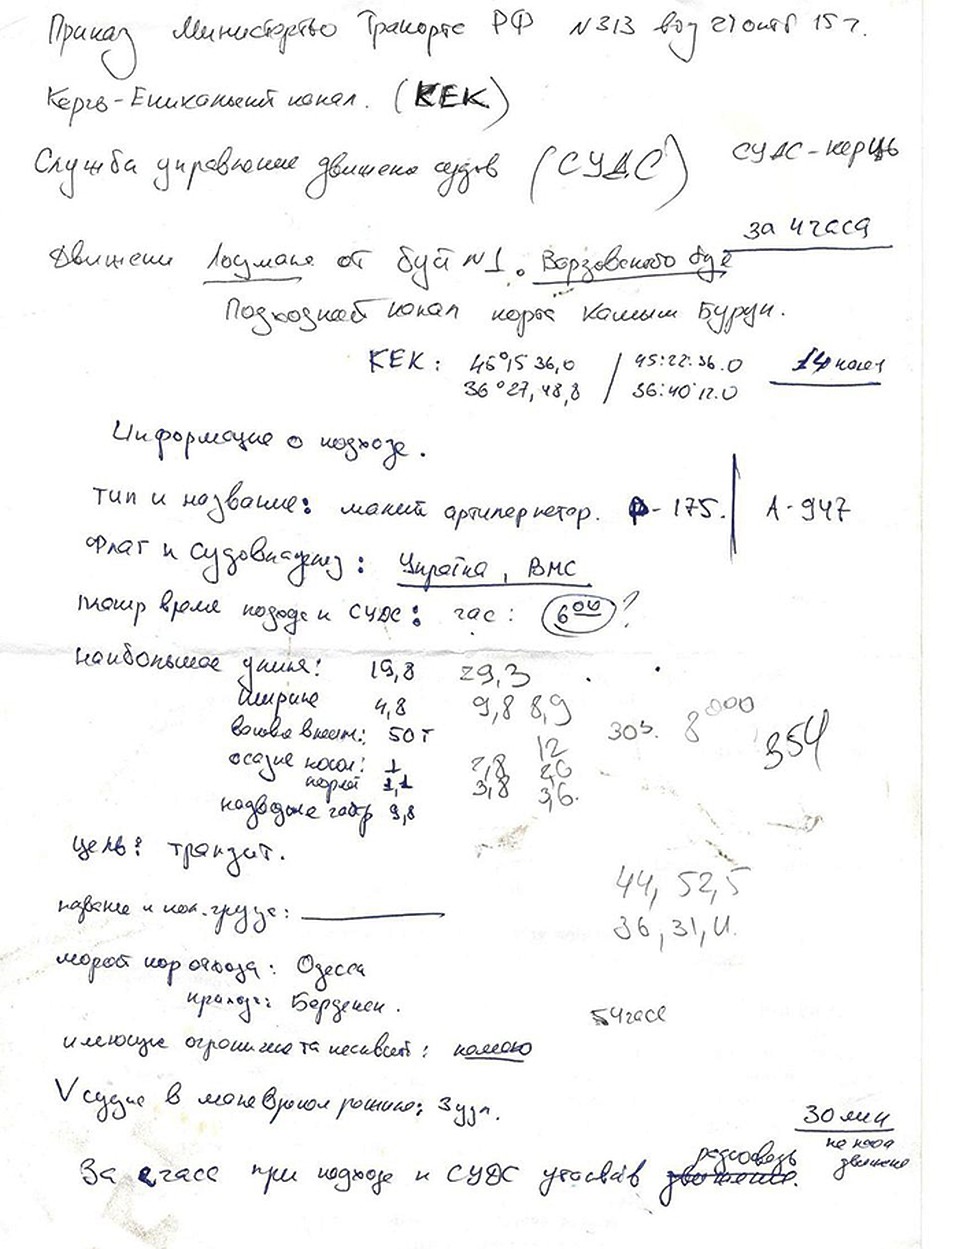 Приказ Министерство Транспорте РФ N313 від 21 окт 15 г.
Керч-Еникальский канал. (КЕК)
Служба управление движением судов (СУДС) СУДС-Керць
за 4 часа
Движени Лоцмана от буй N1. Варзовского буя
Подходной канал порта Камыш Бурун.
КЕК: 45°15 36,0 / 45:22:36.0 14 каб
36°27,48,8 / 36:40 12.0
Информацие о подходе.
Тип и название: малий артилер катер. P-175. | А-947
Флаг и судовладелец: Україна, ВМС
время подода к СУДС: час: 6 00 ?
наибольшая длина: 19,8 29,3
ширина 4,8 9,8 8,9
50 т 30з. 8 000 354
осадка носом: 1 2,8 12 26
кормой 1,1 3,8 3,6.
надводные габар 9,8
Цель: транзит.
44, 52,5
название и кол. груза:
36, 31, 4.
морской пор отхода: Одесса
прихода: Бердянск.
5 4 часа
имеющие ограничения:
V судна в маневренном режиме: 3 узл.
30 мин
не нача движение
За 2 часа при подходе к СУДС радиосвязь